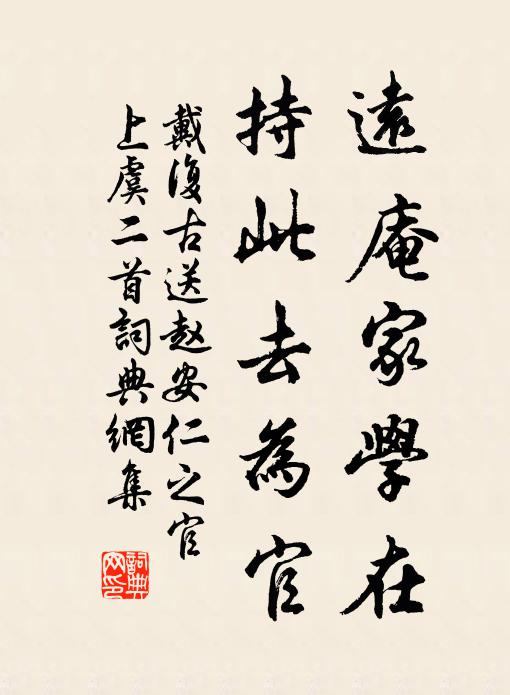 遠庵家學在
持此去為官
戴復古送赵安仁之官
上虞二首詞典網集
詞典
网印